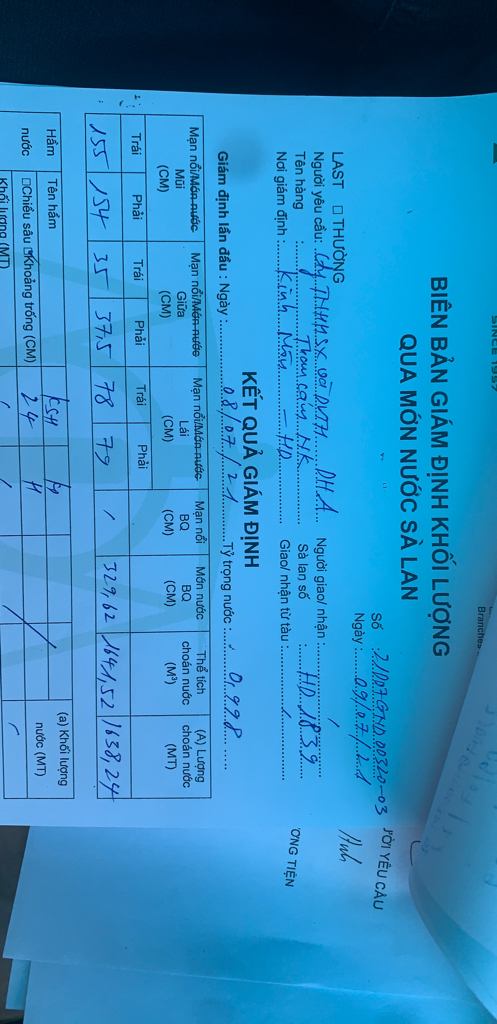 SINCE 1997
Branches
BIÊN BẢN GIÁM ĐỊNH KHỐI LƯỢNG
QUA MÓN NƯỚC SÀ LAN
Số :
Ngày : 09/07/21
LAST □ THƯỜNG
Người yêu cầu: Cty TNHH SX và DVTH DHA Người giao/ nhận : /
Tên hàng : Than cám NK Sà lan số : HD 1839
Nơi giám định : Kinh Môn - HD Giao/ nhận từ tàu : /
KẾT QUẢ GIÁM ĐỊNH
Giám định lần đầu : Ngày : 08/07/21 Tỷ trọng nước : 0,998
Mạn nổi/Món nước Mũi (CM) Mạn nổi/Món nước Giữa (CM) Mạn nổi/Món nước Lái (CM) Mạn nổi BQ (CM) Món nước BQ (CM) Thể tích choán nước (M³) (A) Lượng choán nước (MT)
Trái Phải Trái Phải Trái Phải
155 154 35 37,5 78 79 / 329,62 1641,52 1638,24
Hầm nước Tên hầm (a) Khối lượng nước (MT)
□Chiều sâu □Khoảng trống (CM) 24 4
Khối lượng (MT)
ƯỜI YÊU CẦU
Anh
ƠNG TIỆN